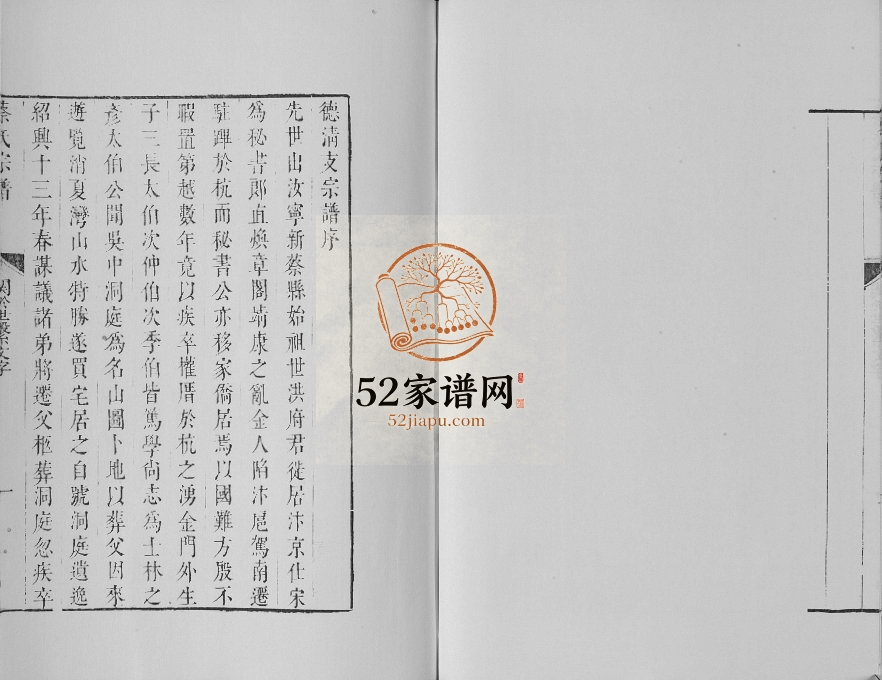 德淸支宗譜序
先世出汝寧新蔡縣始祖世洪府君徙居汴京仕宋
爲秘書郞直煥章閣靖康之亂金人陷汴扈駕南遷
駐蹕於杭而秘書公亦移家僑居焉以國難方殷不
暇置第越數年竟以疾卒權厝於杭之湧金門外生
子三長太伯次仲伯次季伯皆篤學尙志爲士林之
彥太伯公聞吳中洞庭爲名山圖卜地以葬父因來
遊覽消夏灣山水特勝遂買宅居之自號洞庭遺逸
紹興十三年春謀議諸弟將遷父柩葬洞庭忽疾卒
蔡氏宗譜
一
52家谱网
52jiapu.com